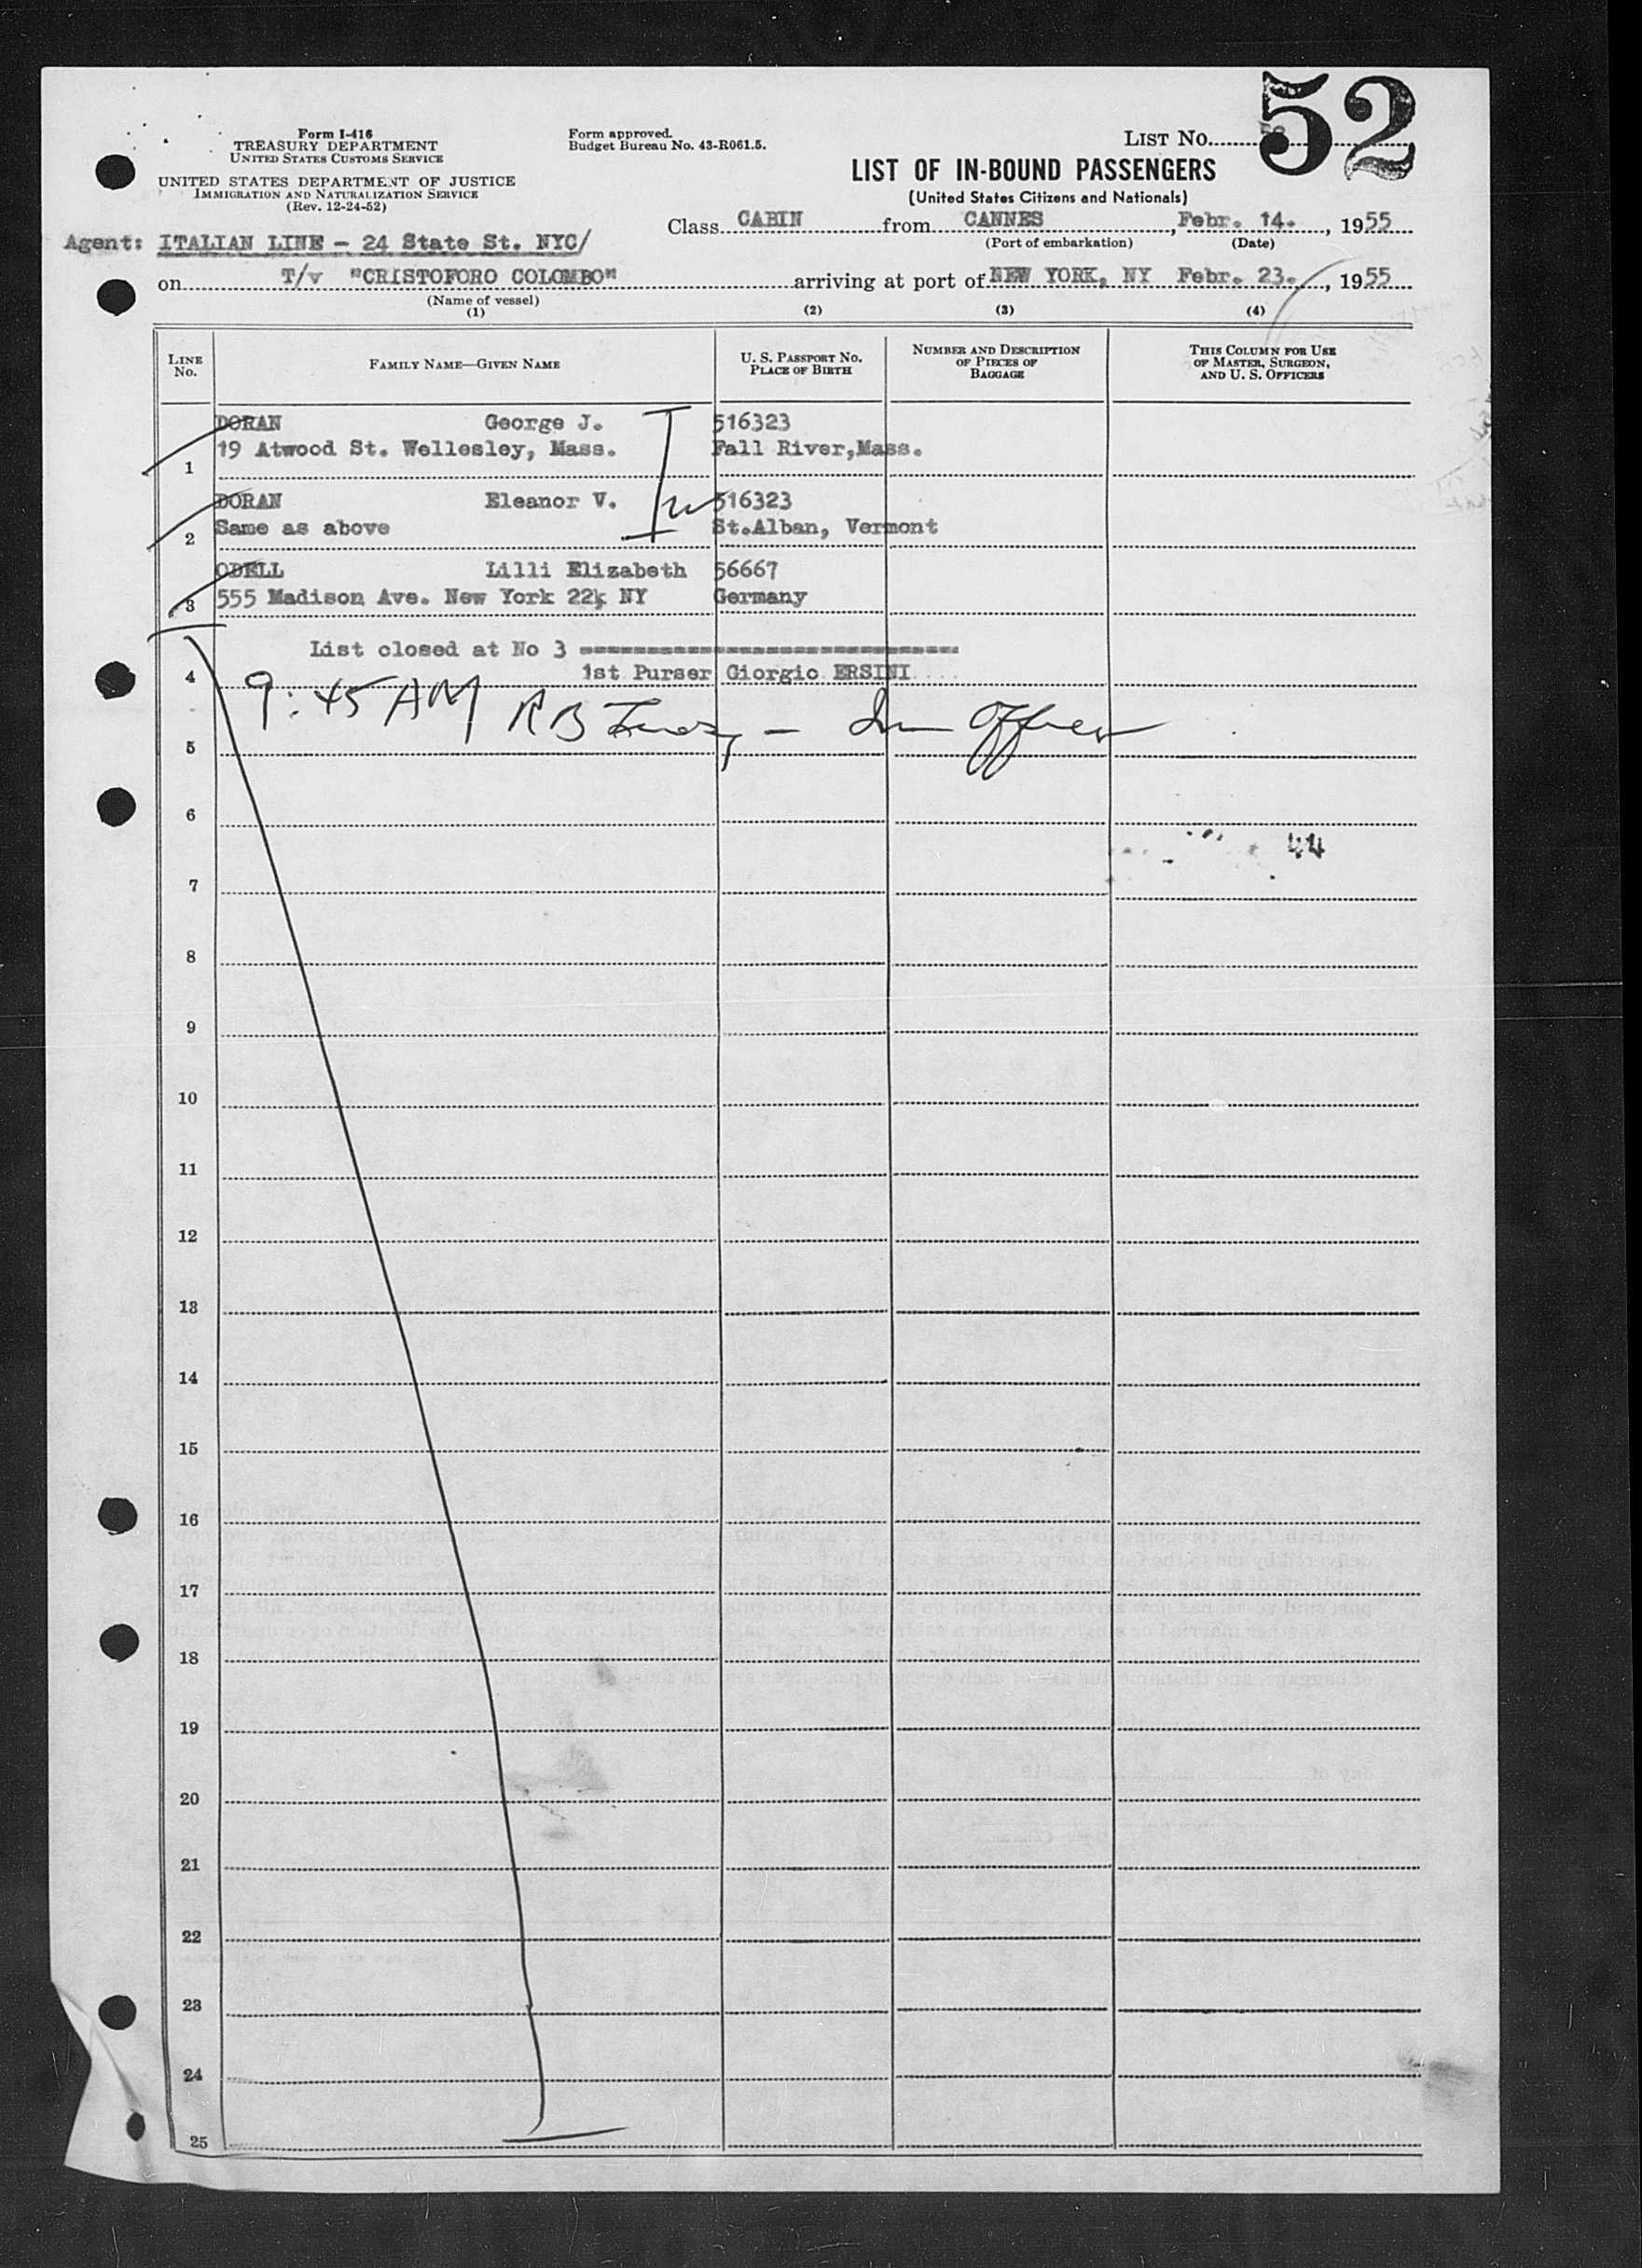 52
Form I-416
TREASURY DEPARTMENT
UNITED STATES CUSTOMS SERVICE
UNITED STATES DEPARTMENT OF JUSTICE
IMMIGRATION AND NATURALIZATION SERVICE
(Rev. 12-24-52)
Form approved.
Budget Bureau No. 43-R061.5.
LIST No.
LIST OF IN-BOUND PASSENGERS
(United States Citizens and Nationals)
Class CABIN from CANNES, Febr. 14., 1955
(Port of embarkation) (Date)
Agent: ITALIAN LINE - 24 State St. NYC/
on T/v "CRISTOFORO COLOMBO" arriving at port of NEW YORK, NY Febr. 23., 1955
(Name of vessel)
(1) (2) (3) (4)
LINE No. FAMILY NAME—GIVEN NAME U. S. PASSPORT NO. PLACE OF BIRTH NUMBER AND DESCRIPTION OF PIECES OF BAGGAGE THIS COLUMN FOR USE OF MASTER, SURGEON, AND U. S. OFFICERS
DORAN George J. 516323
1 19 Atwood St. Wellesley, Mass. Fall River,Mass.
DORAN Eleanor V. 516323
2 Same as above St.Alban, Vermont
ODELL Lilli Elizabeth 56667
3 555 Madison Ave. New York 22, NY Germany
List closed at No 3
4 1st Purser Giorgio ERSINI
9:45 AM R B - Im Officer
5
6
44
7
8
9
10
11
12
13
14
15
16
17
18
19
20
21
22
23
24
25